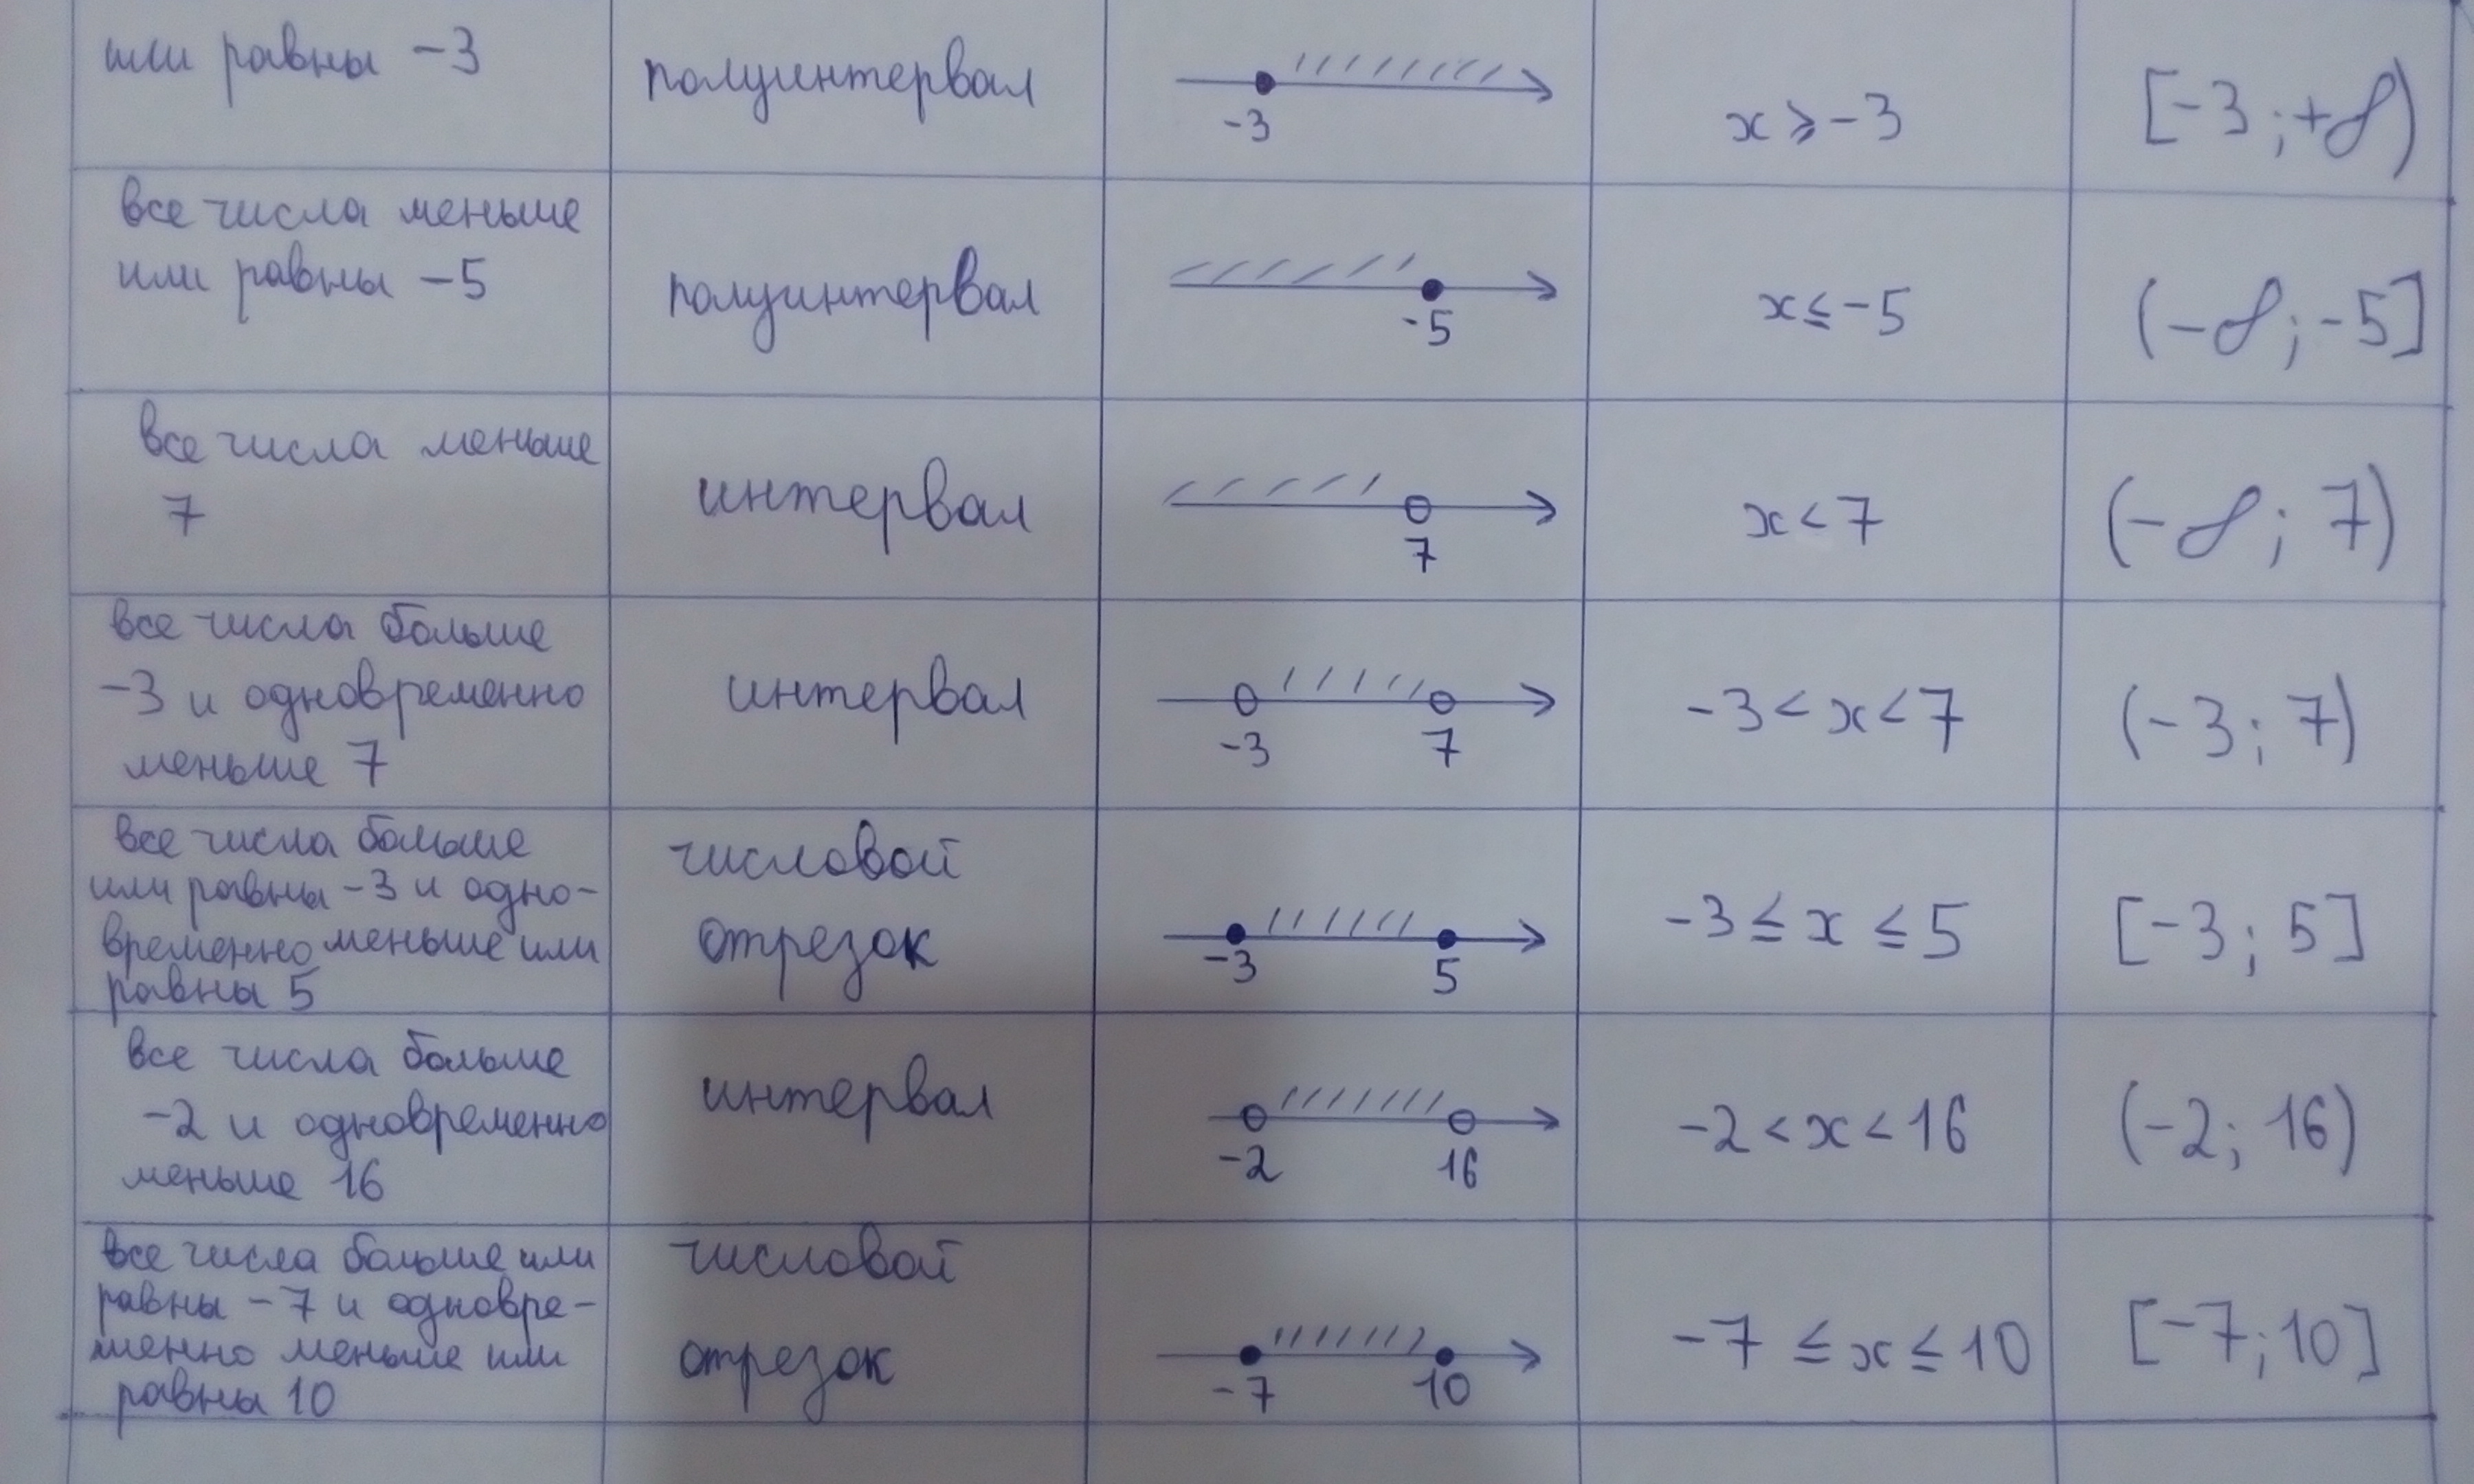 или равны -3
полуинтервал
-3
x ⩾ -3
[-3; +∞)
все числа меньше
или равны -5
полуинтервал
-5
x ≤ -5
(-∞; -5]
все числа меньше
7
интервал
7
x < 7
(-∞; 7)
все числа больше
-3 и одновременно
меньше 7
интервал
-3 7
-3 < x < 7
(-3; 7)
все числа больше
или равны -3 и одно-
временно меньше или
равны 5
числовой
отрезок
-3 5
-3 ≤ x ≤ 5
[-3; 5]
все числа больше
-2 и одновременно
меньше 16
интервал
-2 16
-2 < x < 16
(-2; 16)
все числа больше или
равны -7 и одновре-
менно меньше или
равны 10
числовой
отрезок
-7 10
-7 ≤ x ≤ 10
[-7; 10]